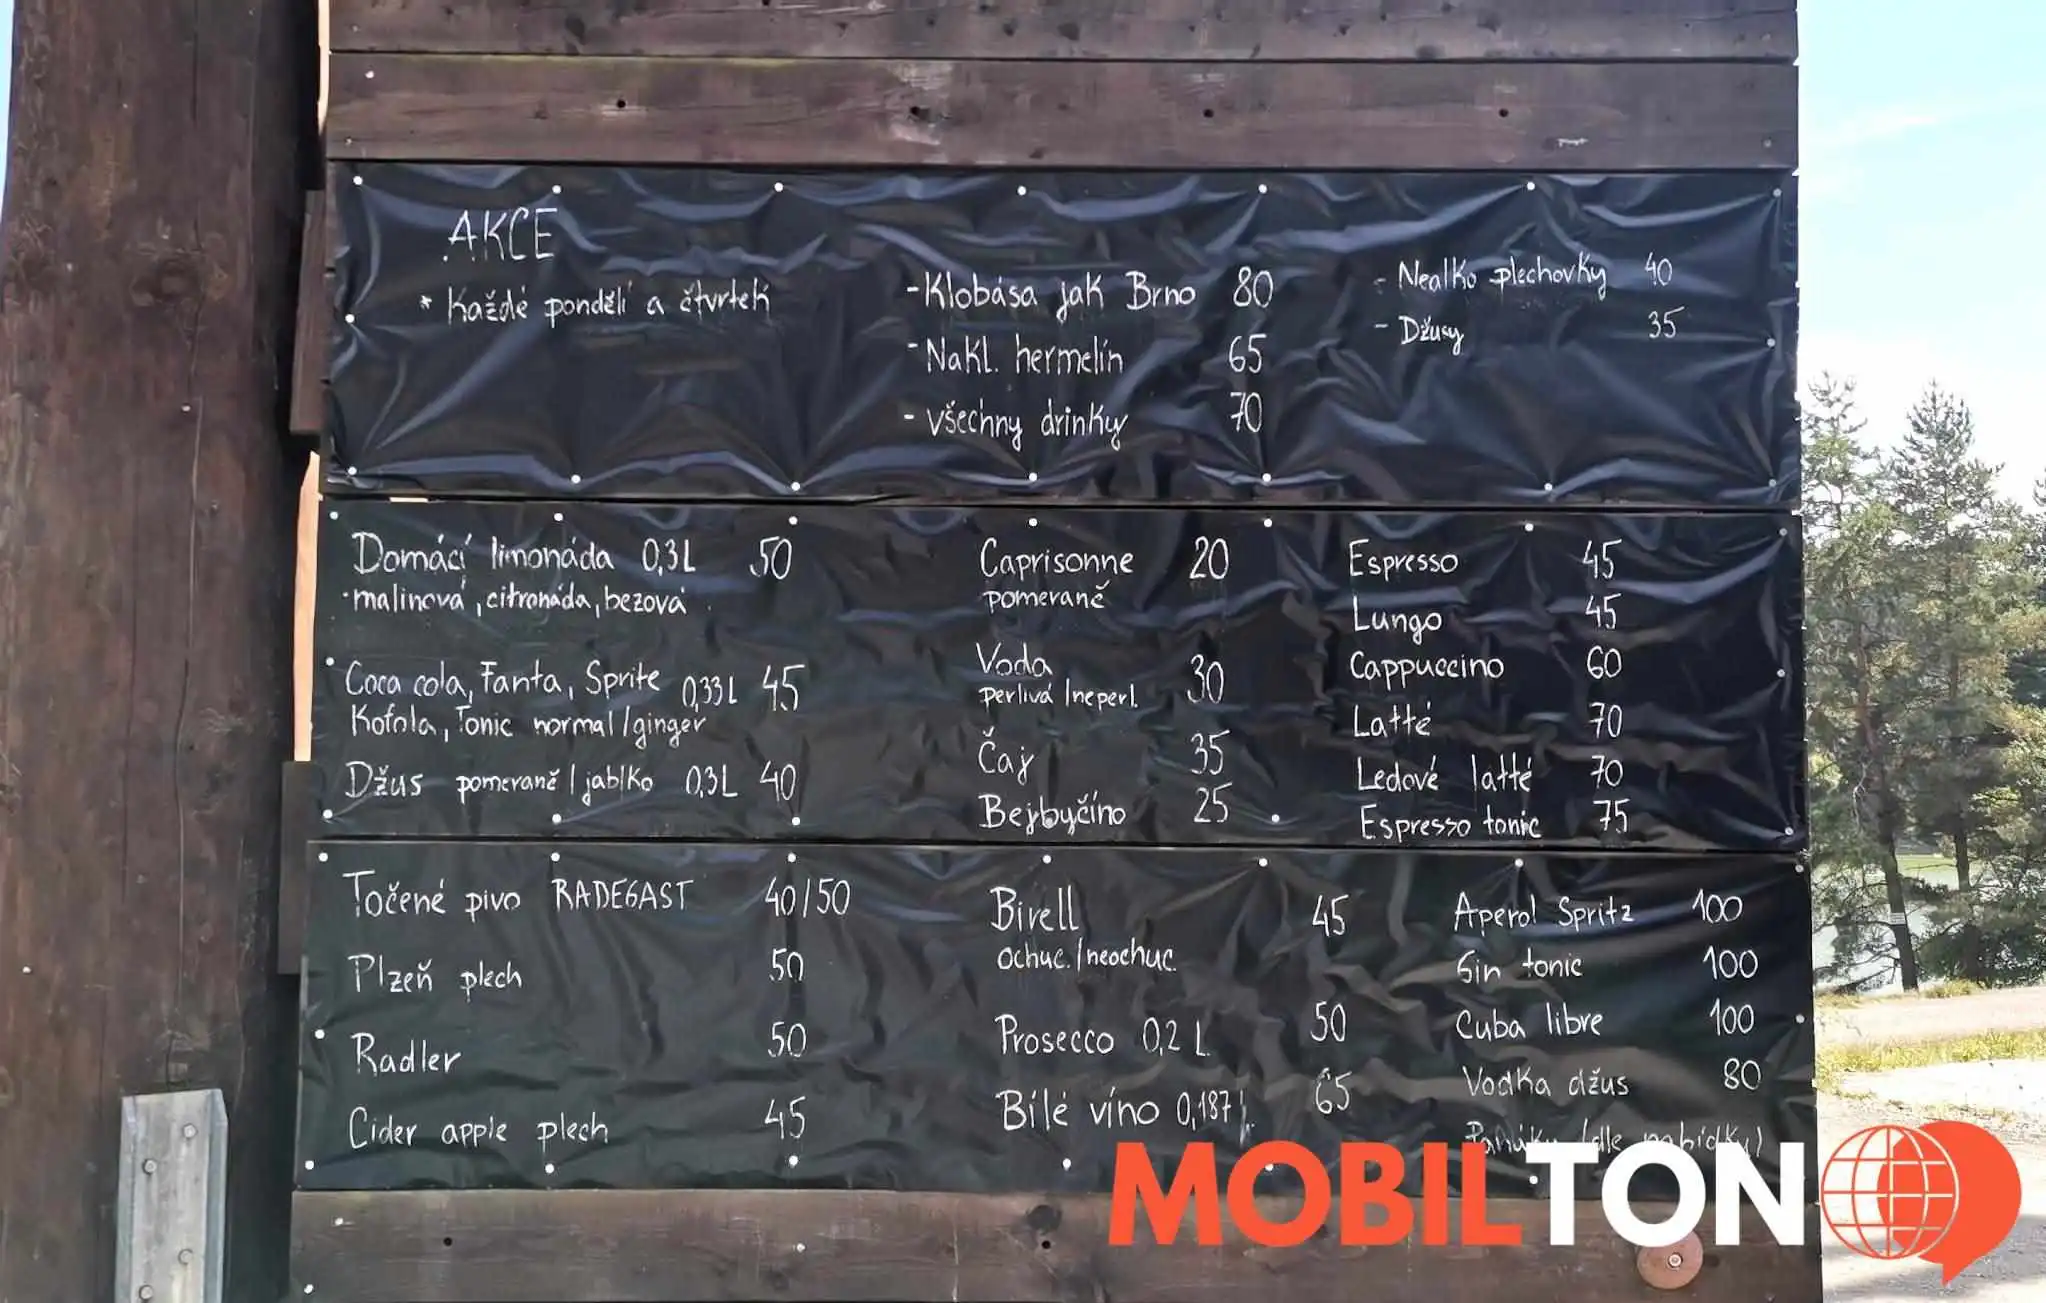 AKCE
* Každé pondělí a čtvrtek
- Klobása jak Brno 80
- Nakl. hermelín 65
- všechny drinky 70
- Nealko plechovky 40
- Džusy 35
Domácí limonáda 0,3L 50
· malinová, citronáda, bezová
Coca cola, Fanta, Sprite 0,33L 45
Kofola, Tonic normal/ginger
Džus pomeranč/jablko 0,3L 40
Caprisonne 20
pomeranč
Voda 30
perlivá/neperl.
Čaj 35
Bejbyčíno 25
Espresso 45
Lungo 45
Cappuccino 60
Latté 70
Ledové latté 70
Espresso tonic 75
Točené pivo RADEGAST 40/50
Plzeň plech 50
Radler 50
Cider apple plech 45
Birell 45
ochuc./neochuc.
Prosecco 0,2 L 50
Bílé víno 0,187 L 65
Aperol Spritz 100
Gin tonic 100
Cuba libre 100
Vodka džus 80
Panáky (dle nabídky)
MOBILTON